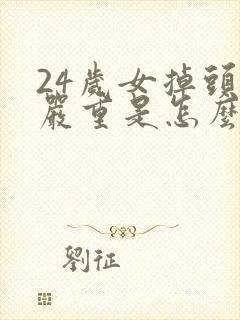 24歲女掉頭
嚴重是怎麼
劉征